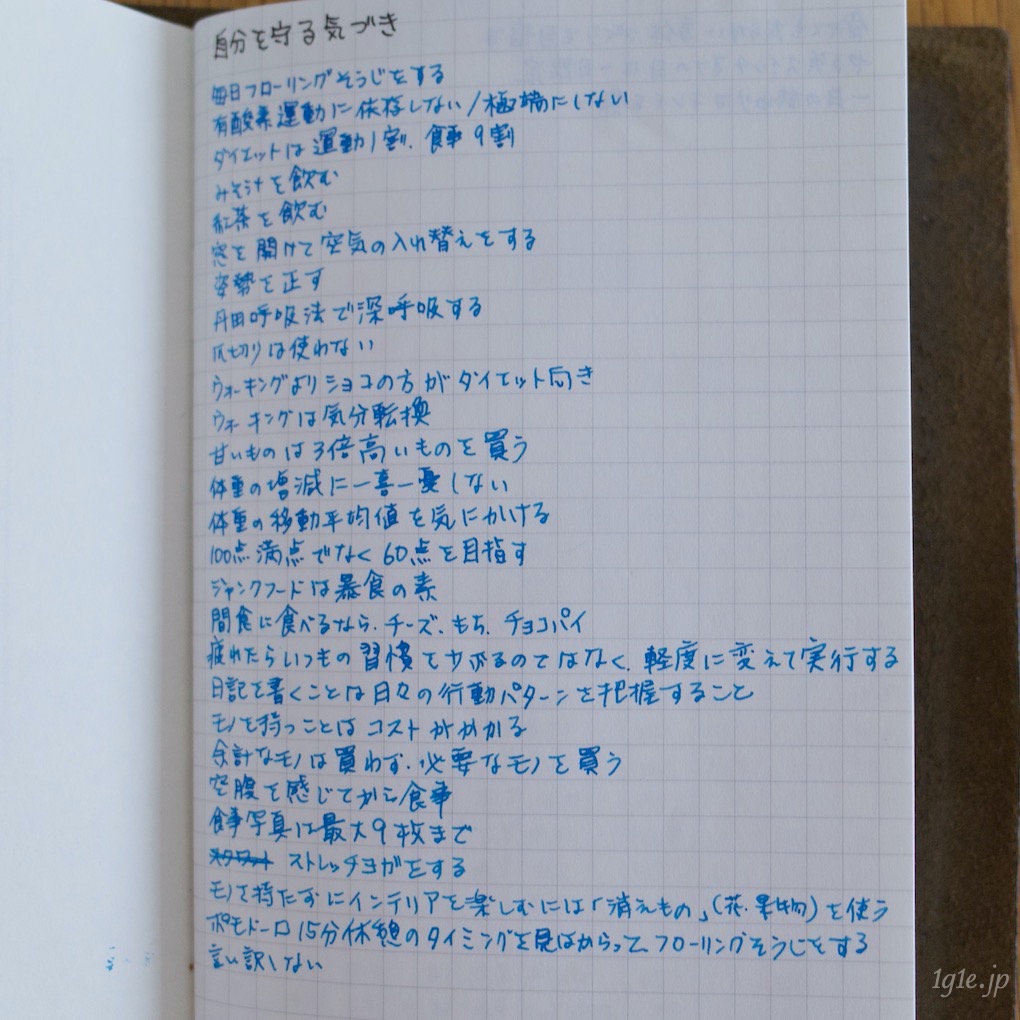 自分を守る気づき
毎日フローリングそうじをする
有酸素運動に依存しない/極端にしない
ダイエットは運動1割、食事9割
みそ汁を飲む
紅茶を飲む
窓を開けて空気の入れ替えをする
姿勢を正す
丹田呼吸法で深呼吸する
爪切りは使わない
ウォーキングよりショコの方がダイエット向き
ウォーキングは気分転換
甘いものは3倍高いものを買う
体重の増減に一喜一憂しない
体重の移動平均値を気にかける
100点満点でなく60点を目指す
ジャンクフードは暴食の素
間食に食べるなら、チーズ、もち、チョコパイ
疲れたらいつもの習慣をやぶるのではなく、軽度に変えて実行する
日記を書くことは日々の行動パターンを把握すること
モノを持つことはコストがかかる
余計なモノは買わず、必要なモノを買う
空腹を感じてから食事
食事写真は最大9枚まで
ストレッチヨガをする
モノを持たずにインテリアを楽しむには「消えもの」(花、果物)を使う
ポモドーロ15分休憩のタイミングを見はからってフローリングそうじをする
言い訳しない
1g1e.jp